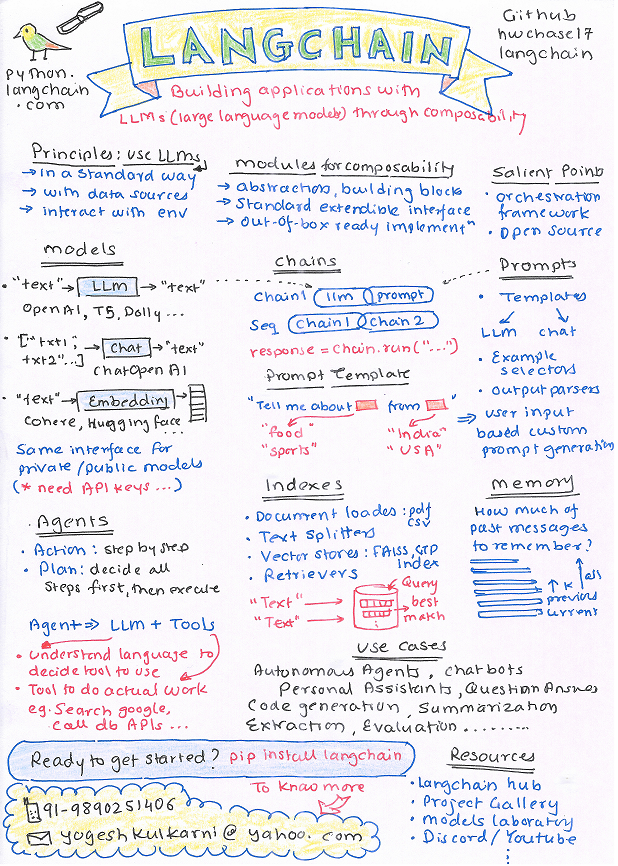 LANGCHAIN
python.
langchain
.com
Github
hwchase17
langchain
Building applications with
LLMs (large language models) through composability
Principles: use LLMs
→ in a standard way
→ with data sources
→ interact with env
modules for composability
→ abstraction, building blocks
→ Standard extendible interface
→ out-of-box ready implement"
Salient Points
• orchestration
framework
• open source
models
• "text" → LLM → "text"
OpenAI, T5, Dolly ...
• ["txt1",
txt2"...] → Chat → "text"
ChatOpenAI
• "text" → Embedding →
Cohere, Hugging face
Same interface for
private/public models
(* need API keys ...)
Chains
Chain1 llm prompt
Seq chain1 chain2
response = chain.run("...")
Prompt Template
"Tell me about from "
"food" "India"
"sports" "USA"
Prompts
• Templates
LLM chat
• Example
selectors
• output parsers
⇒ user input
based custom
prompt generation
Agents
• Action: step by step
• Plan: decide all
steps first, then execute
Agent ⇒ LLM + Tools
• understand language to
decide tool to use
• Tool to do actual work
eg. Search google,
call db APIs ...
Indexes
• Document loades: pdf
csv
• Text splitters
• Vector stores: FAISS, GTP
Index
• Retrievers
"Text" → Query
"Text" → best
match
Memory
How much of
past messages
to remember?
all
↑ K
previous
current
use cases
Autonomous Agents, chatbots
Personal Assistants, Question Answer
Code generation, Summarization
Extraction, Evaluation .........
Ready to get started? pip install langchain
To know more
91-9890251406
yogeshkulkarni@yahoo.com
Resources
• Langchain hub
• Project Gallery
• models laboratory
• Discord/Youtube